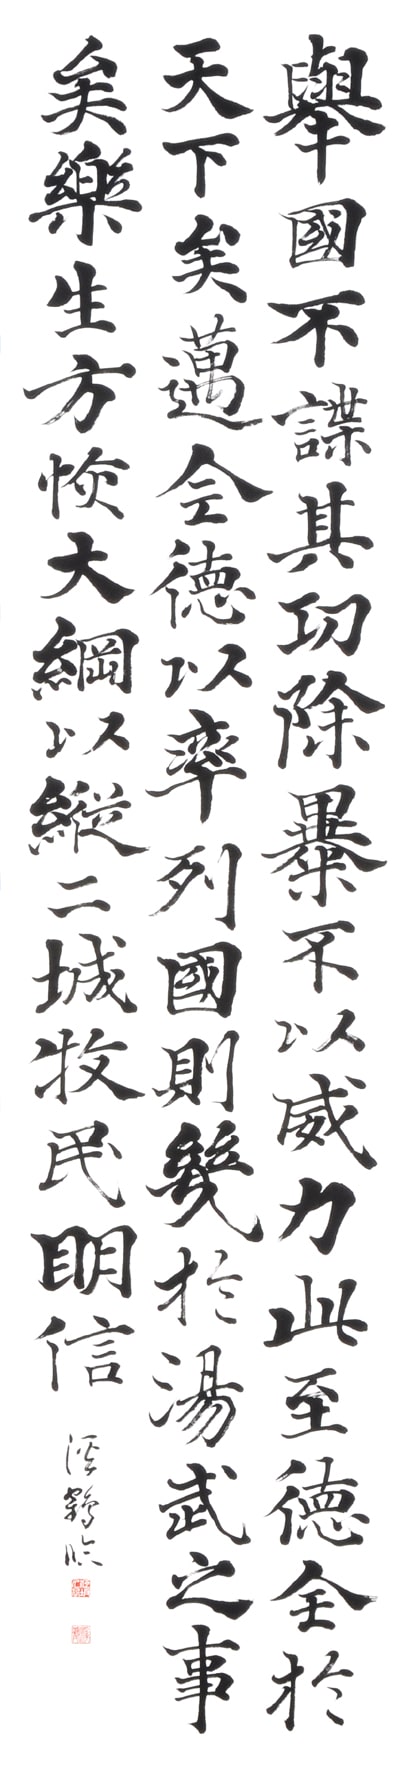 舉國不謀其功除暴不以威力此至德全於
天下矣邁全德以率列國則幾於湯武之事
矣樂生方恢大綱以縱二城牧民明信
鶴臨